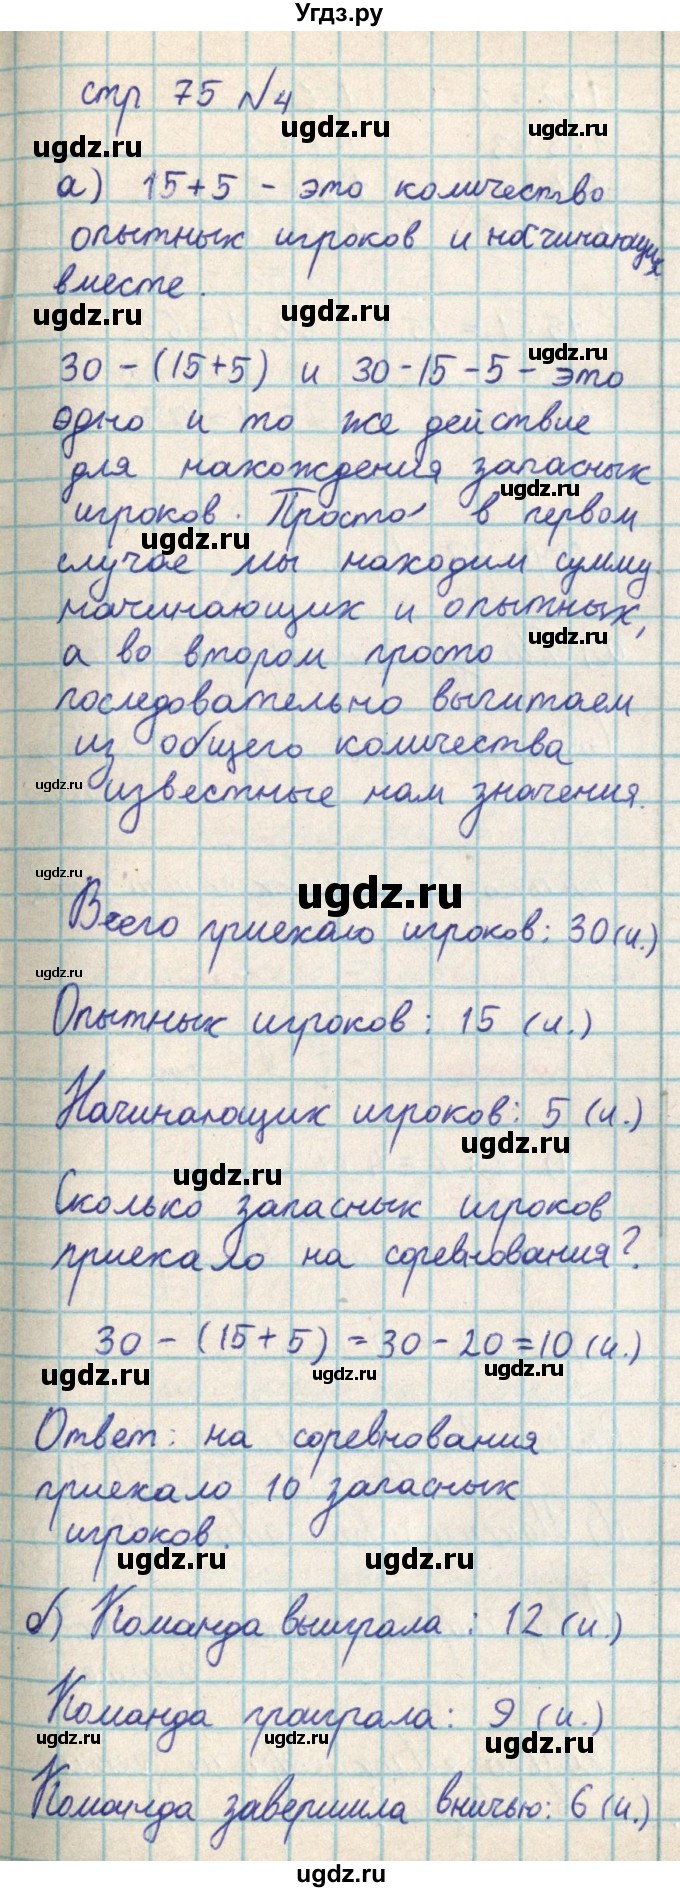 Угдз.ру
стр 75 №4
ugdz.ru ugdz.ru ugdz.ru
а) 15+5 - это количество
опытных игроков и начинающих
вместе.
ugdz.ru ugdz.ru
ugdz.ru
30 - (15+5) и 30-15-5 - это
одно и то же действие
для нахождения запасных
ugdz.ru
игроков. Просто в первом
ugdz.ru
случае мы находим сумму
начинающих и опытных,
ugdz.ru
а во втором просто
последовательно вычитаем
из общего количества
ugdz.ru
известные нам значения.
ugdz.ru
ugdz.ru
Всего приехало игроков: 30 (и.)
ugdz.ru
Опытных игроков: 15 (и.)
Начинающих игроков: 5 (и.)
ugdz.ru
ugdz.ru
Сколько запасных игроков
приехало на соревнования?
30 - (15+5) = 30 - 20 = 10 (и.)
ugdz.ru ugdz.ru ugdz.ru
Ответ: на соревнования
приехало 10 запасных
игроков.
ugdz.ru ugdz.ru
б) Команда выиграла: 12 (и.)
Команда проиграла: 9 (и.)
ugdz.ru ugdz.ru ugdz.ru
Команда завершила вничью: 6 (и.)
ugdz.ru